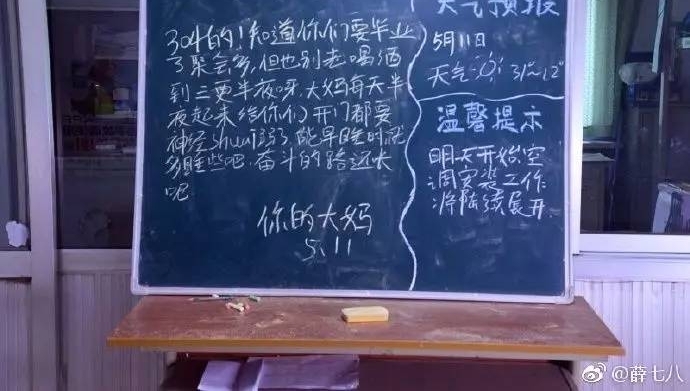 304的！知道你们要毕业
了聚会多，但也别老喝酒
到三更半夜呀，大妈每天半
夜起来给你们开门都要
神经shuai弱了，能早睡时就
多睡些吧，奋斗的路还长
呢
你的大妈
5.11
天气预报
5月11日
天气 31~12°
温馨提示
明天开始空
调安装工作
将陆续展开
@薛七八